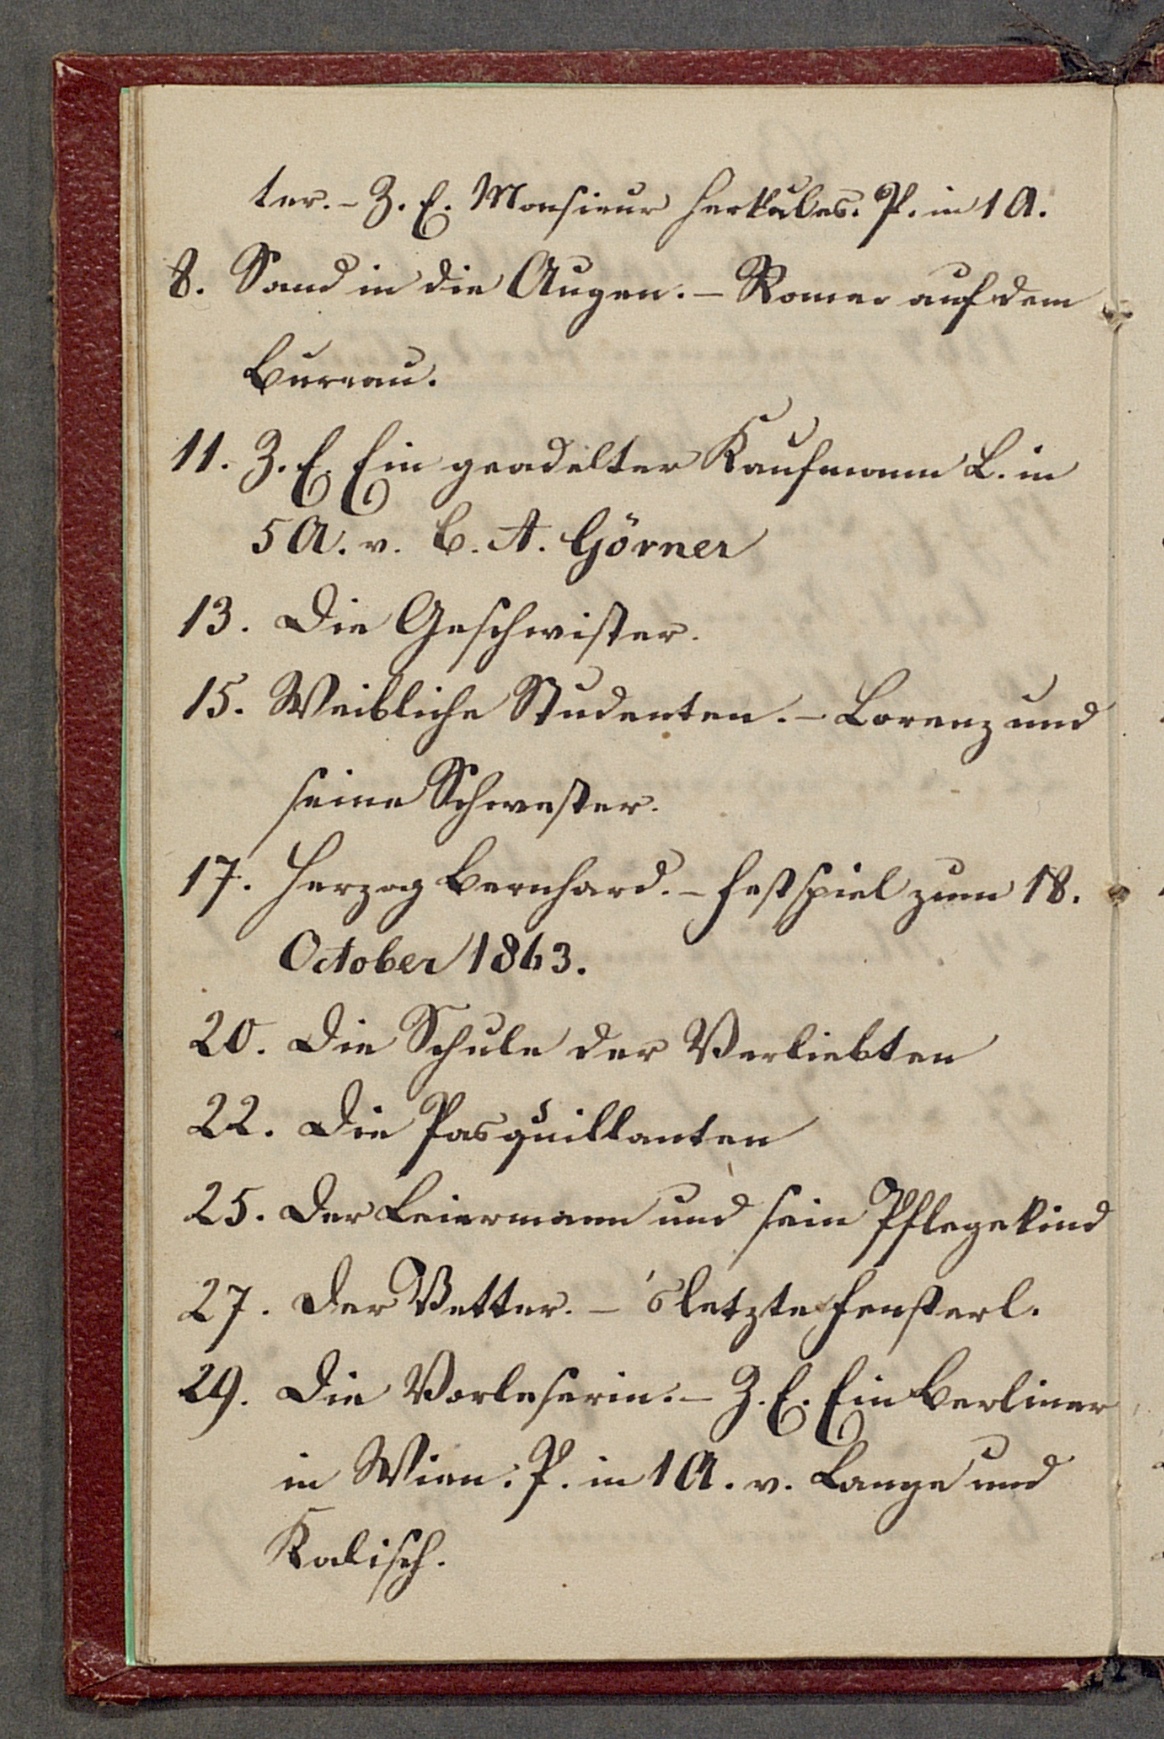 ter. - Z. E. Monsieur Herkules. P. in 1 A.
8. Sand in die Augen. - Romeo auf dem
Bureau.
11. Z. E. Ein geadelter Kaufmann L. in
5 A. v. C. A. Görner
13. Die Geschwister.
15. Weibliche Studenten. - Lorenz und
seine Schwester.
17. Herzog Bernhard. - Festspiel zum 18.
October 1863.
20. Die Schule der Verliebten
22. Die Pasquillanten
25. Der Leiermann und sein Pflegekind
27. Der Vetter. - 's letzte Fensterl.
29. Die Vorleserin. - Z. E. Ein Berliner
in Wien. P. in 1 A. v. Lange und
Kalisch.